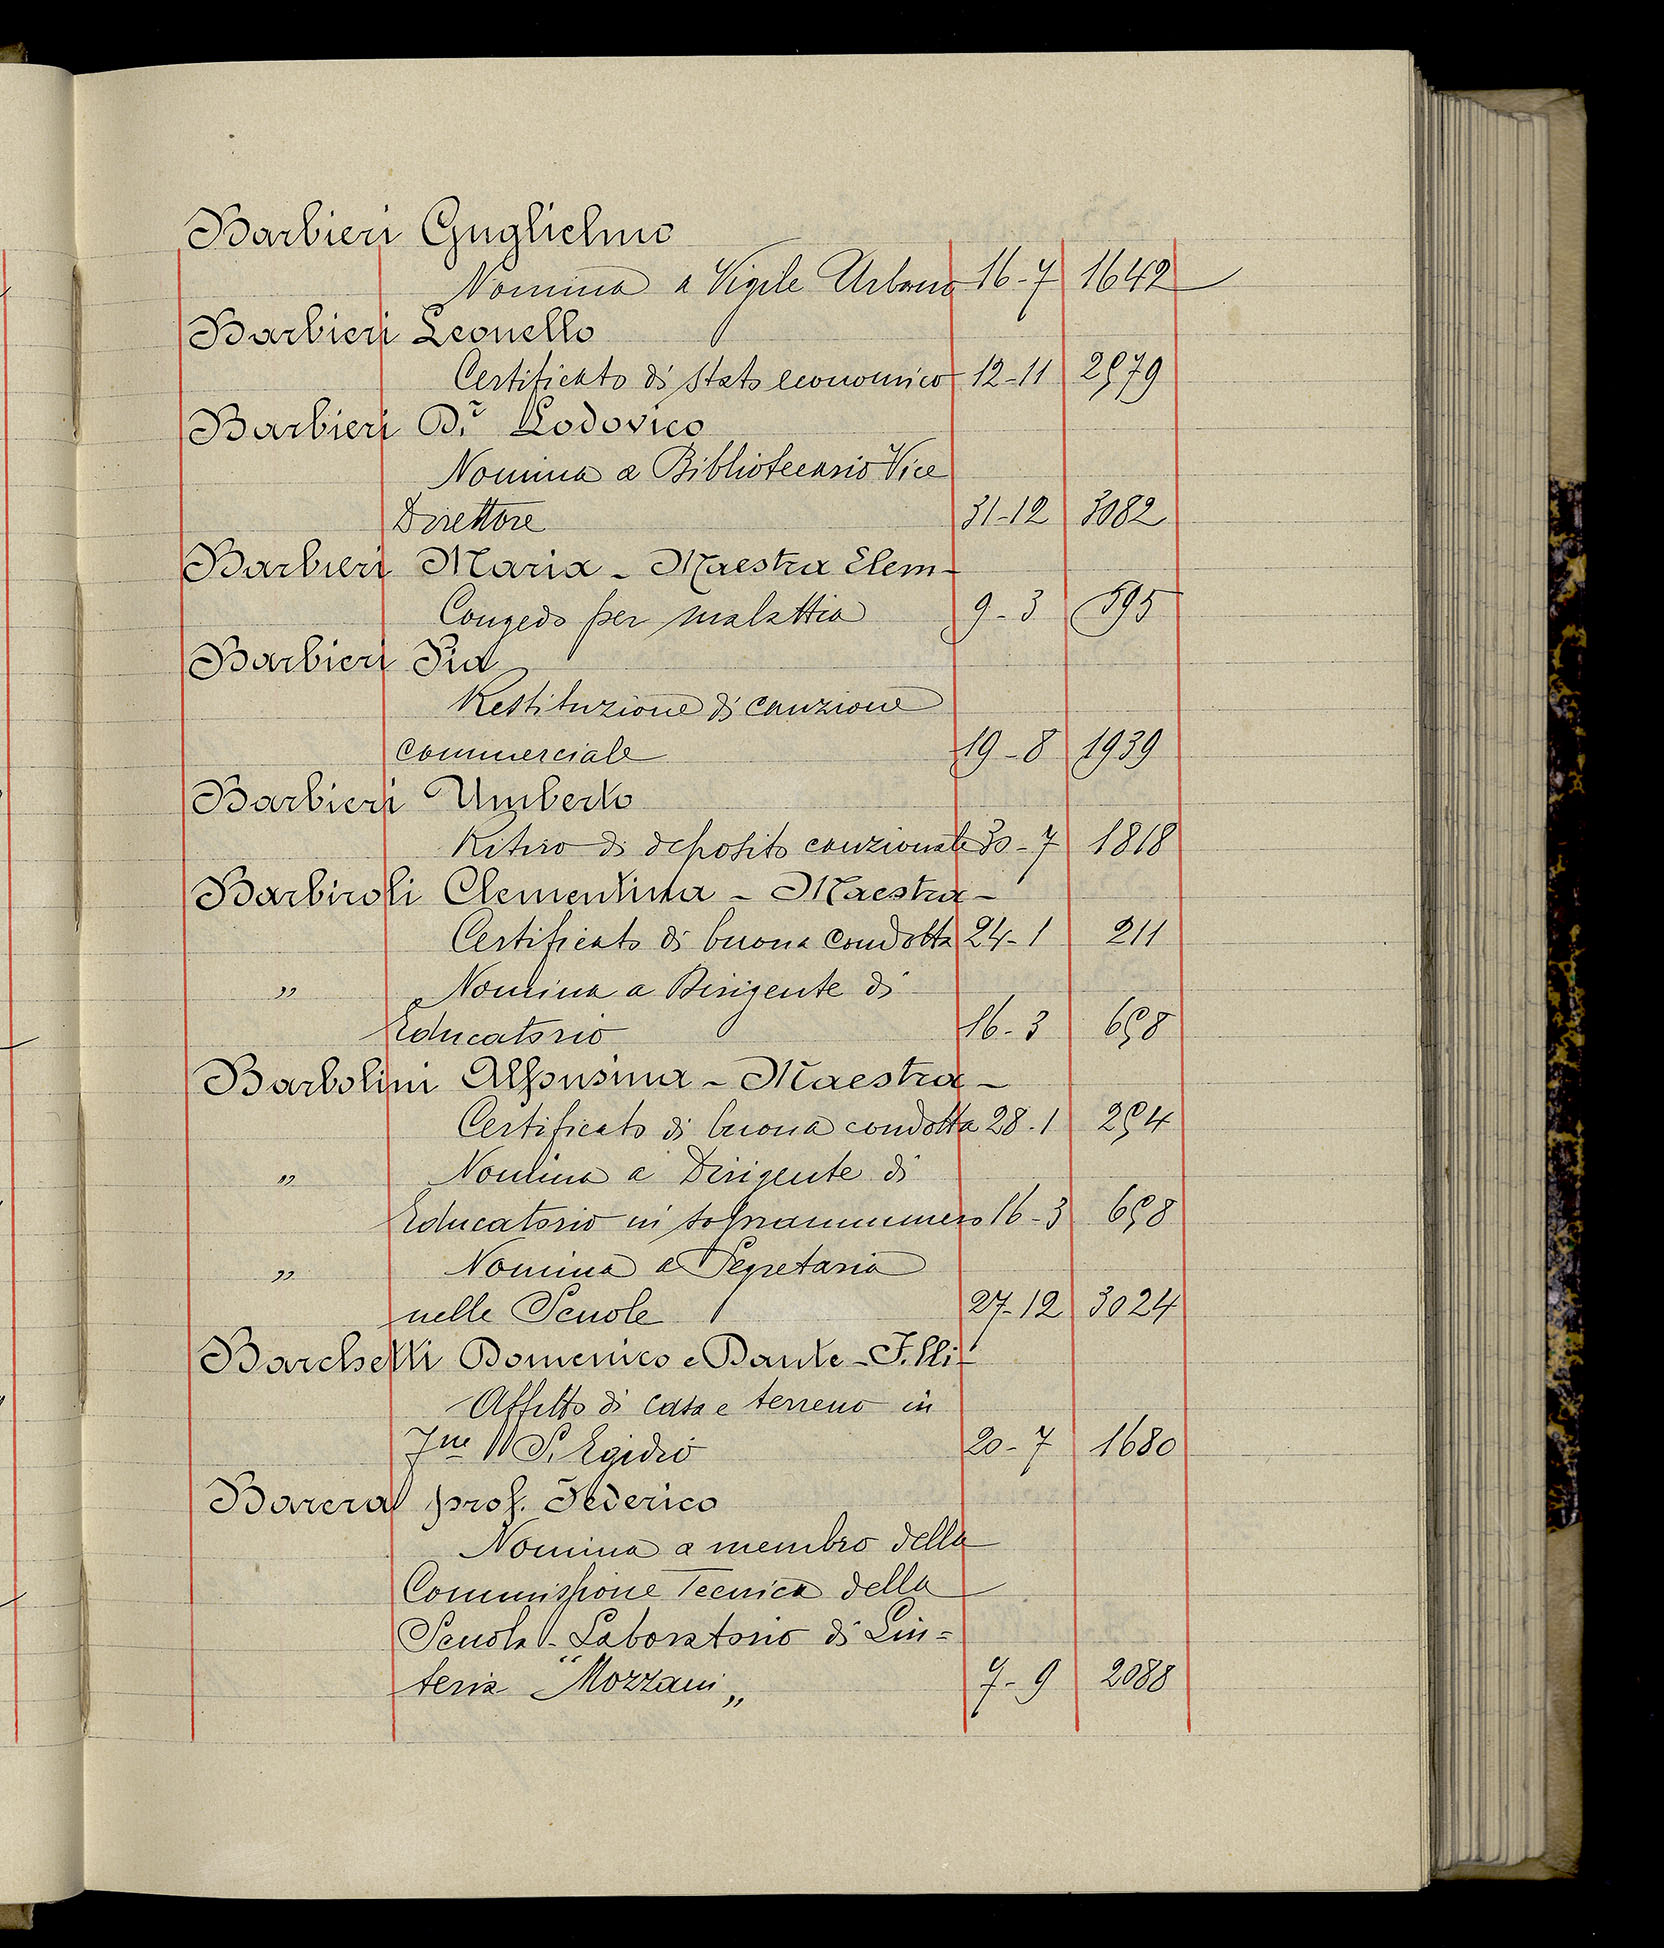 Barbieri Guglielmo
Nomina a Vigile Urbano 16-7 1642
Barbieri Leonello
Certificato di stato economico 12-11 2579
Barbieri D.r Lodovico
Nomina a Bibliotecario Vice
Direttore 31-12 3082
Barbieri Maria - Maestra Elem-
Congedo per malattia 9-3 595
Barbieri Pia
Restituzione di cauzione
commerciale 19-8 1939
Barbieri Umberto
Ritiro di deposito cauzionale 30-7 1818
Barbiroli Clementina - Maestra-
Certificato di buona condotta 24-1 211
" Nomina a Dirigente di
Educatorio 16-3 658
Barbolini Alfonsina - Maestra -
Certificato di buona condotta 28-1 254
" Nomina a Dirigente di
Educatorio in soprannumero 16-3 658
" Nomina a Segretaria
nelle Scuole 27-12 3024
Barchetti Domenico e Dante - F.lli-
Affitto di casa e terreno in
S. Egidio 20-7 1680
Barera prof. Federico
Nomina a membro della
Commissione Tecnica della
Scuola-Laboratorio di Liu=
teria "Mozzani„ 7-9 2088